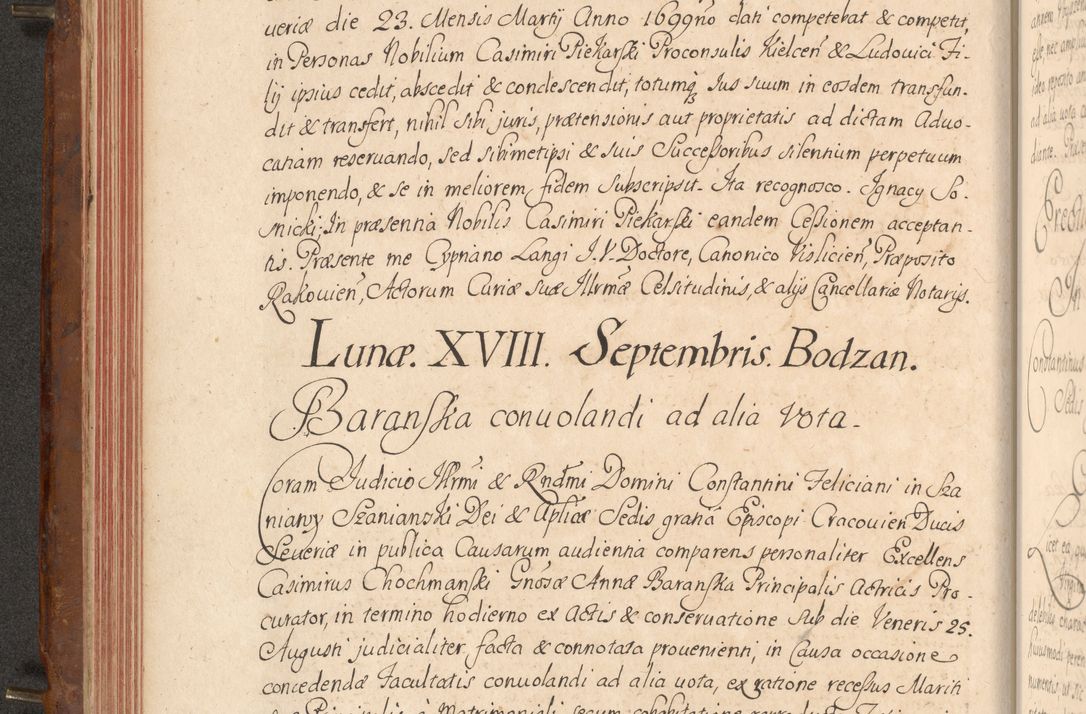 ueriæ die 23. Mensis Martij Anno 1699no dati competebat & competit,
in Personas Nobilium Casimiri Piekarski Proconsulis Kielceń & Ludovici Fi-
lij ipsius cedit, abscedit & condescendit, totumq; Ius suum in eosdem transfun-
dit & transfert, nihil sibi juris, prætensionis aut proprietatis ad dictam Aduo-
catiam reseruando, sed sibimetipsi & suis Successoribus silentium perpetuum
imponendo, & se in meliorem fidem Subscripsit. Ita recognosco. Ignacy So-
snicki; In præsentia Nobilis Casimiri Piekarski eandem Cessionem acceptan-
tis. Præsente me Cypriano Langi I.V. Doctore, Canonico Vislicień, Præposito
Rakouień, Actorum Curiæ suæ Illrmæ Celsitudinis, & alijs Cancellariæ Notarijs.
Lunæ. XVIII. Septembris. Bodzan.
Baranska conuolandi ad alia vota.
Coram Judicio Illrmi & Rndmi Domini Constantini Feliciani in Sza
niawy Szaniawski Dei & Aplicæ Sedis gratia Episcopi Cracouien Ducis
Seueriæ in publica Causarum audientia comparens personaliter Excellens
Casimirus Chochmanski Gnosæ Annæ Baranska Principalis Actricis Pro-
curator, in termino hodierno ex Actis & conseruatione sub die Veneris 25.
Augusti judicialiter facta & connotata prouenienti, in Causa occasione
concedendæ Facultatis conuolandi ad alia uota, ex ratione recessus Mariti